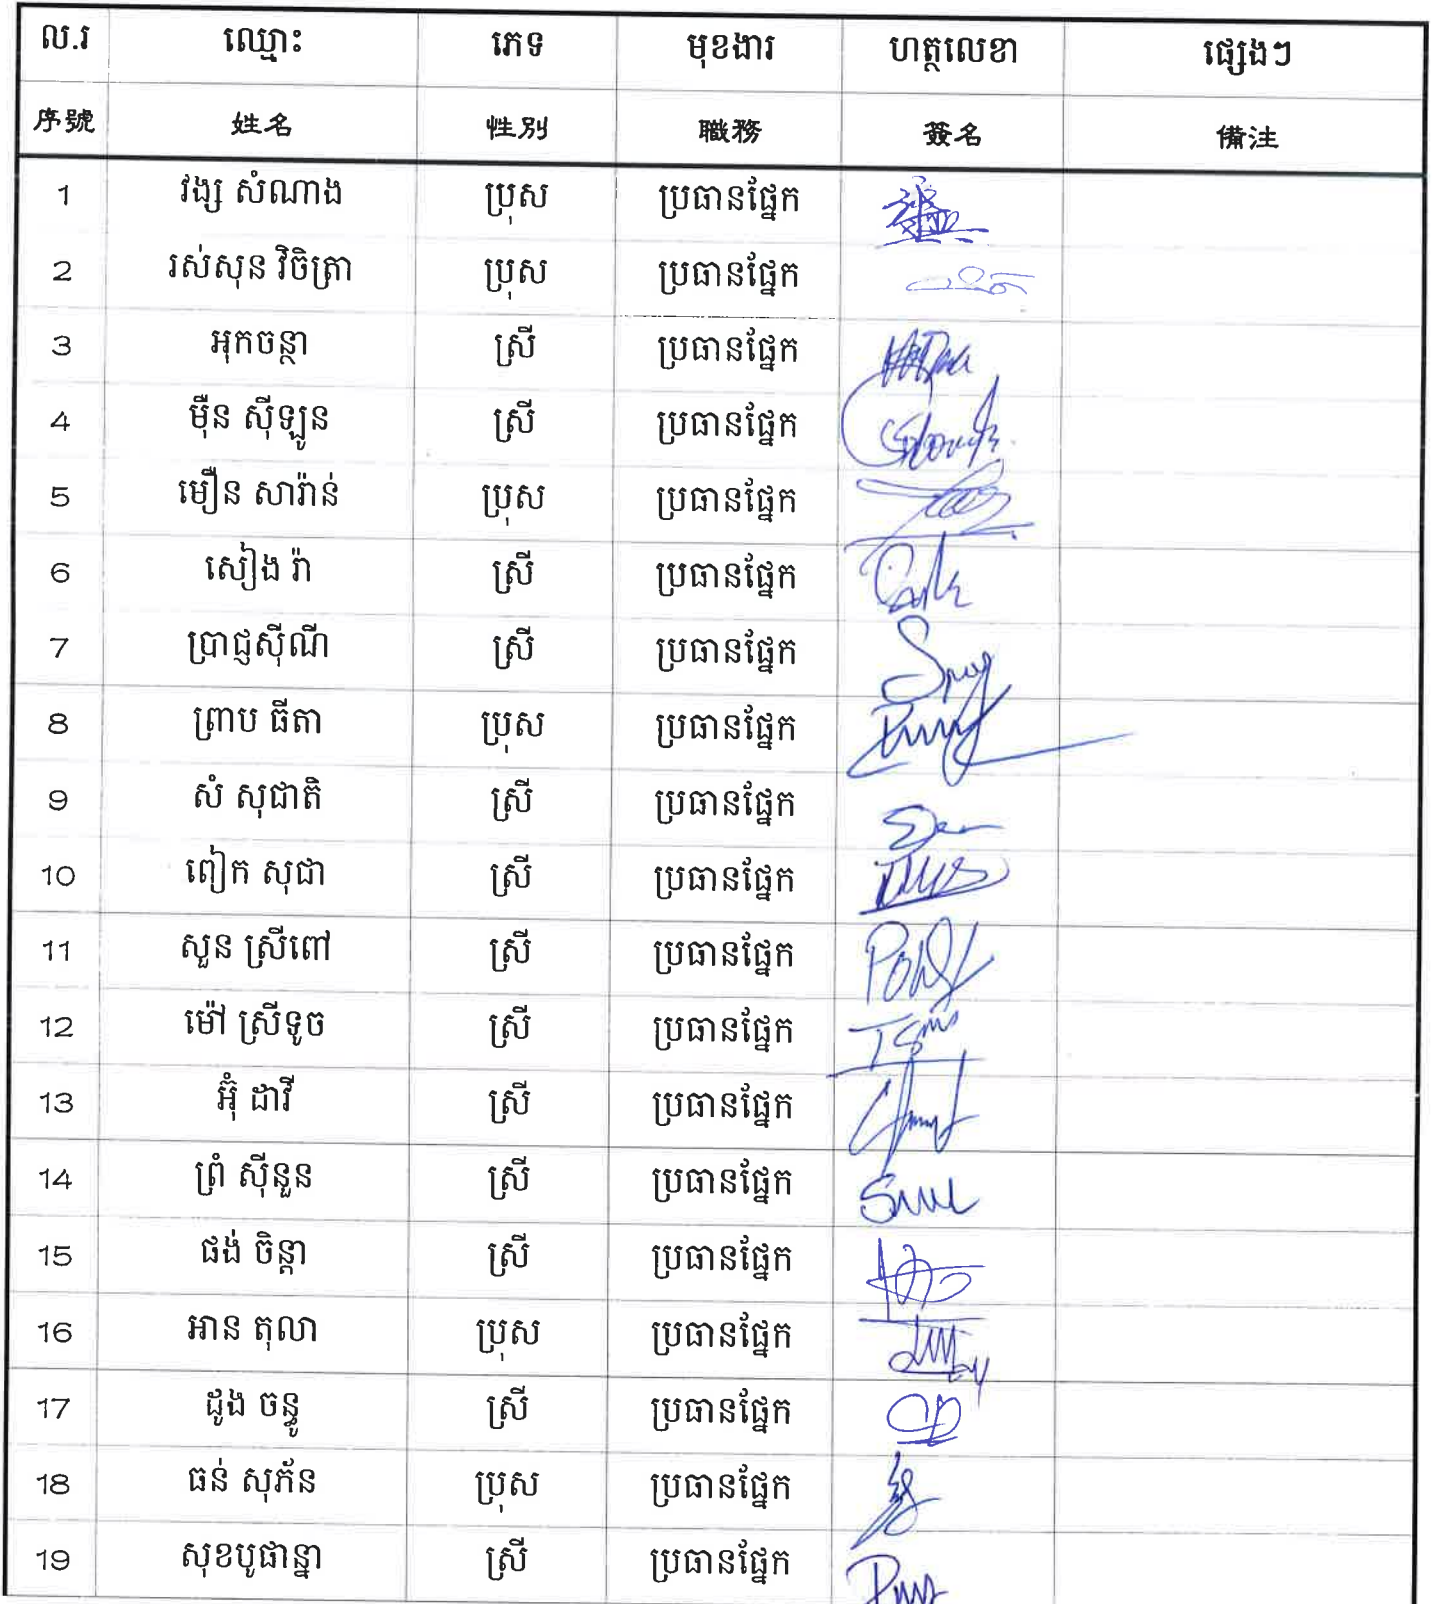 ល.រ ឈ្មោះ ភេទ មុខងារ ហត្ថលេខា ផ្សេងៗ
序號 姓名 性別 職務 簽名 備注
1 វង្ស សំណាង ប្រុស ប្រធានផ្នែក
2 រស់សុន វិចិត្រា ប្រុស ប្រធានផ្នែក
3 អុកចន្ថា ស្រី ប្រធានផ្នែក
4 ម៉ឺន ស៊ីឡូន ស្រី ប្រធានផ្នែក
5 មឿន សារ៉ាន់ ប្រុស ប្រធានផ្នែក
6 សៀង រ៉ា ស្រី ប្រធានផ្នែក
7 ប្រាជ្ញស៊ីណី ស្រី ប្រធានផ្នែក
8 ព្រាប ធីតា ប្រុស ប្រធានផ្នែក
9 សំ សុជាតិ ស្រី ប្រធានផ្នែក
10 ពៀក សុជា ស្រី ប្រធានផ្នែក
11 សួន ស្រីពៅ ស្រី ប្រធានផ្នែក
12 ម៉ៅ ស្រីទូច ស្រី ប្រធានផ្នែក
13 អ៊ុំ ដាវី ស្រី ប្រធានផ្នែក
14 ព្រំ ស៊ីនួន ស្រី ប្រធានផ្នែក
15 ផង់ ចិន្តា ស្រី ប្រធានផ្នែក
16 អាន តុលា ប្រុស ប្រធានផ្នែក
17 ដូង ចន្ធូ ស្រី ប្រធានផ្នែក
18 ធន់ សុភ័ន ប្រុស ប្រធានផ្នែក
19 សុខបូផាន្នា ស្រី ប្រធានផ្នែក